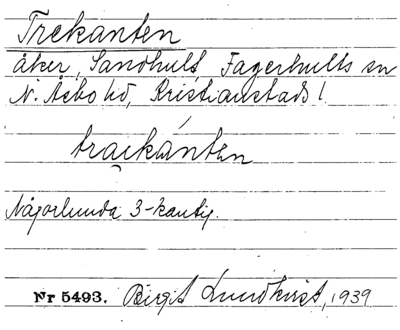 Trekanten
åker, Sandhult, Fagerhults sn
N. Åsbo hd, Kristianstads l
traikánten
Någorlunda 3-kantig.
Nr 5493. Birgit Lundkvist, 1939